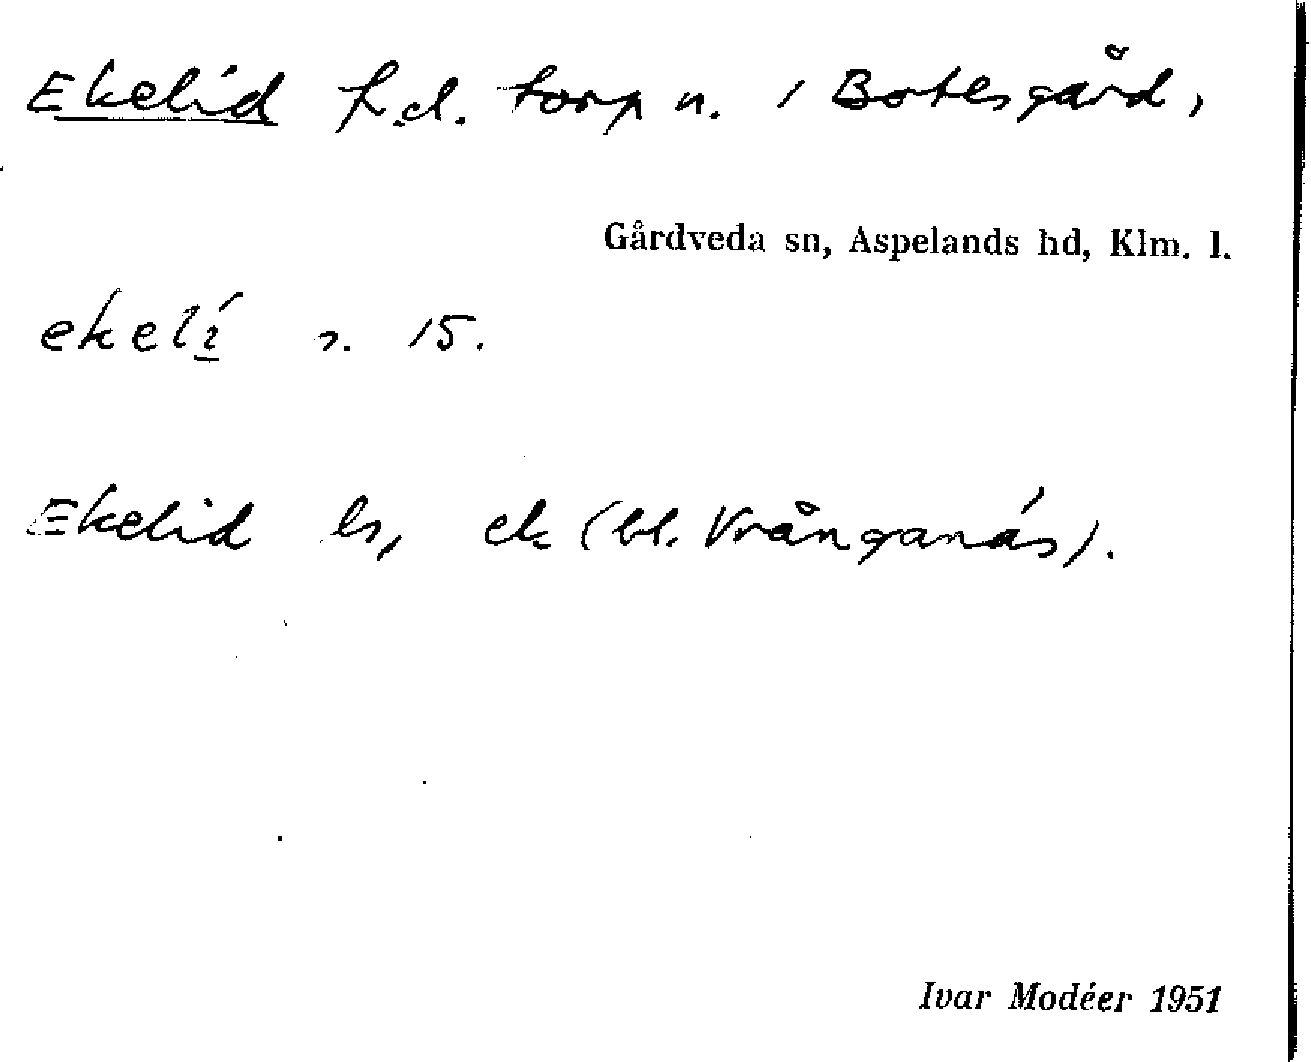 Ekelid f.d. torp n. / Botesgård,
Gårdveda sn, Aspelands hd, Klm. l.
ekelí s. 15.
Ekelid ls, ek (bl. Vrånganäs).
Ivar Modéer 1951